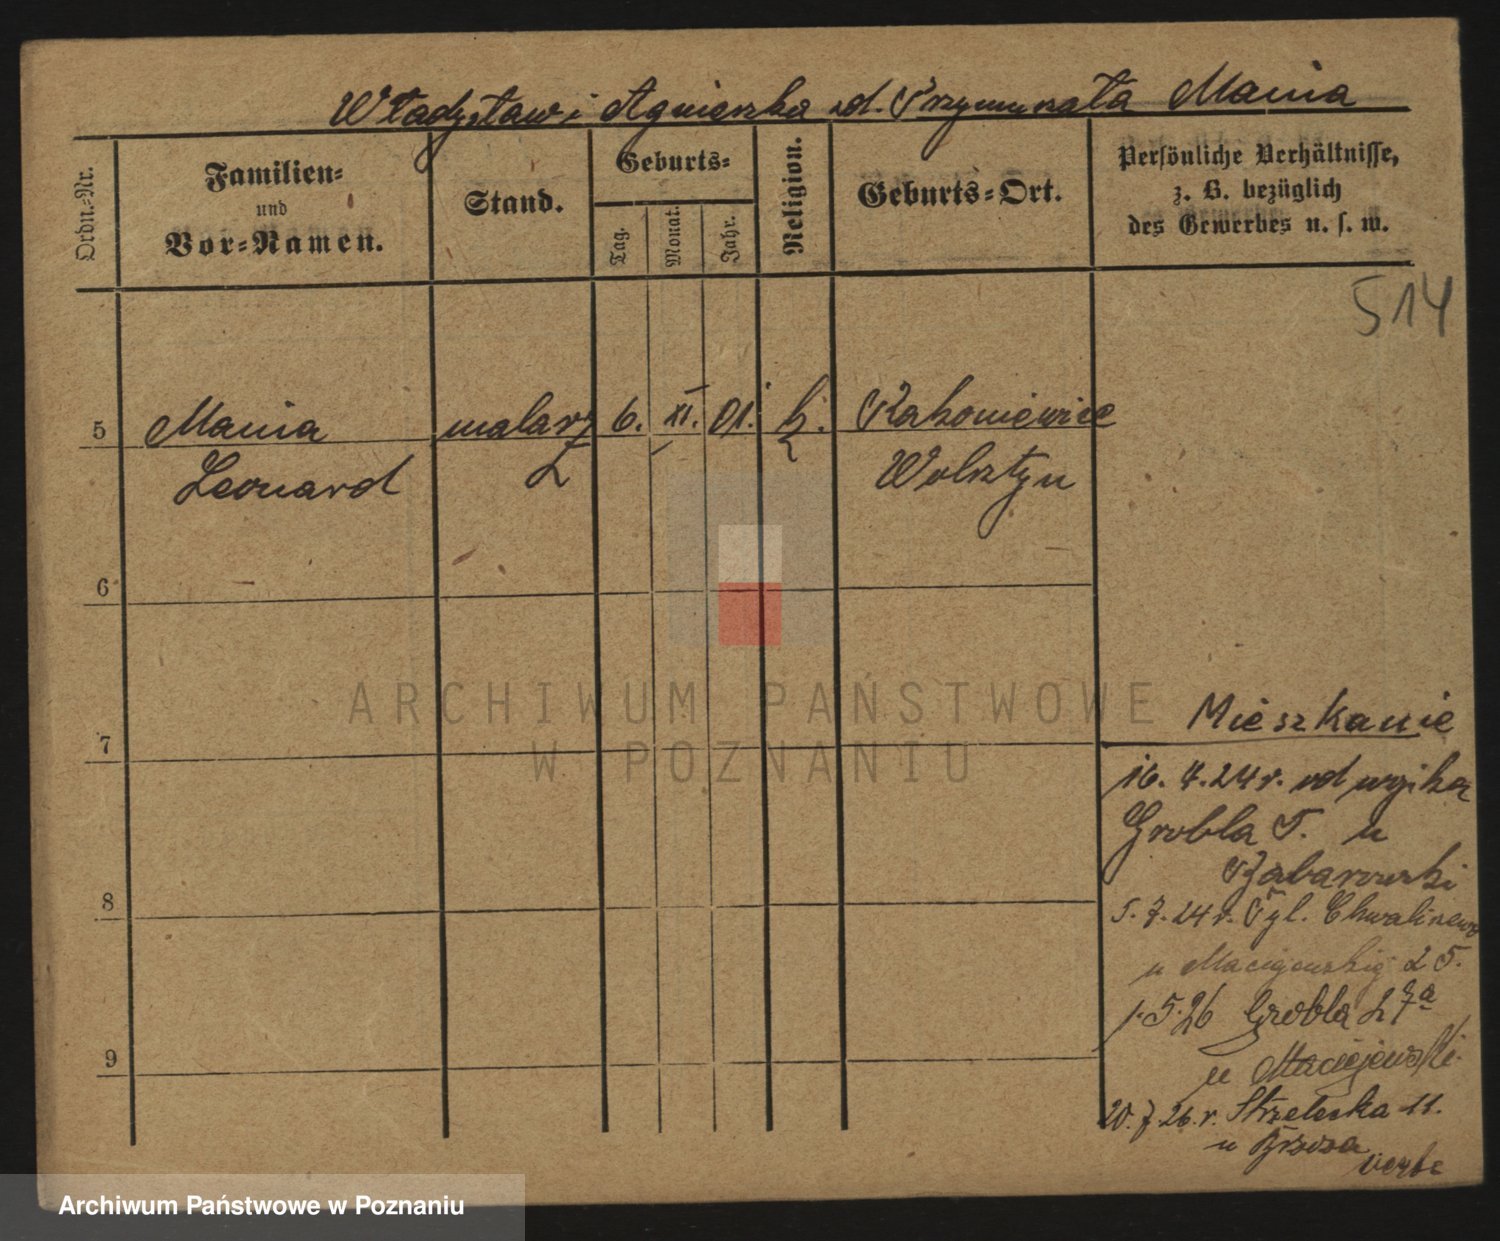 Władysław i Agnieszka zd. Przymuszała Mania
Ordn.-Nr.
Familien-
und
Vor-Namen.
Stand.
Geburts-
Tag.
Monat.
Jahr.
Religion.
Geburts-Ort.
Persönliche Verhältnisse,
z. B. bezüglich
des Gewerbes u. s. w.
514
5 Mania malarz 6. XI. 01. k. Rakoniewice
Leonard Wolsztyn
6
7
8
9
Mieszkanie
16. 4. 24 r. od
Grobla 5. u
5. 7. 24 r. Chwaliszewo
u Maciejewskiej 25.
1.5.26 Grobla 27a
u Maciejewski
20. 7. 26. r. Strzelecka 11.
u Brzoza
ARCHIWUM PAŃSTWOWE
W POZNANIU
Archiwum Państwowe w Poznaniu